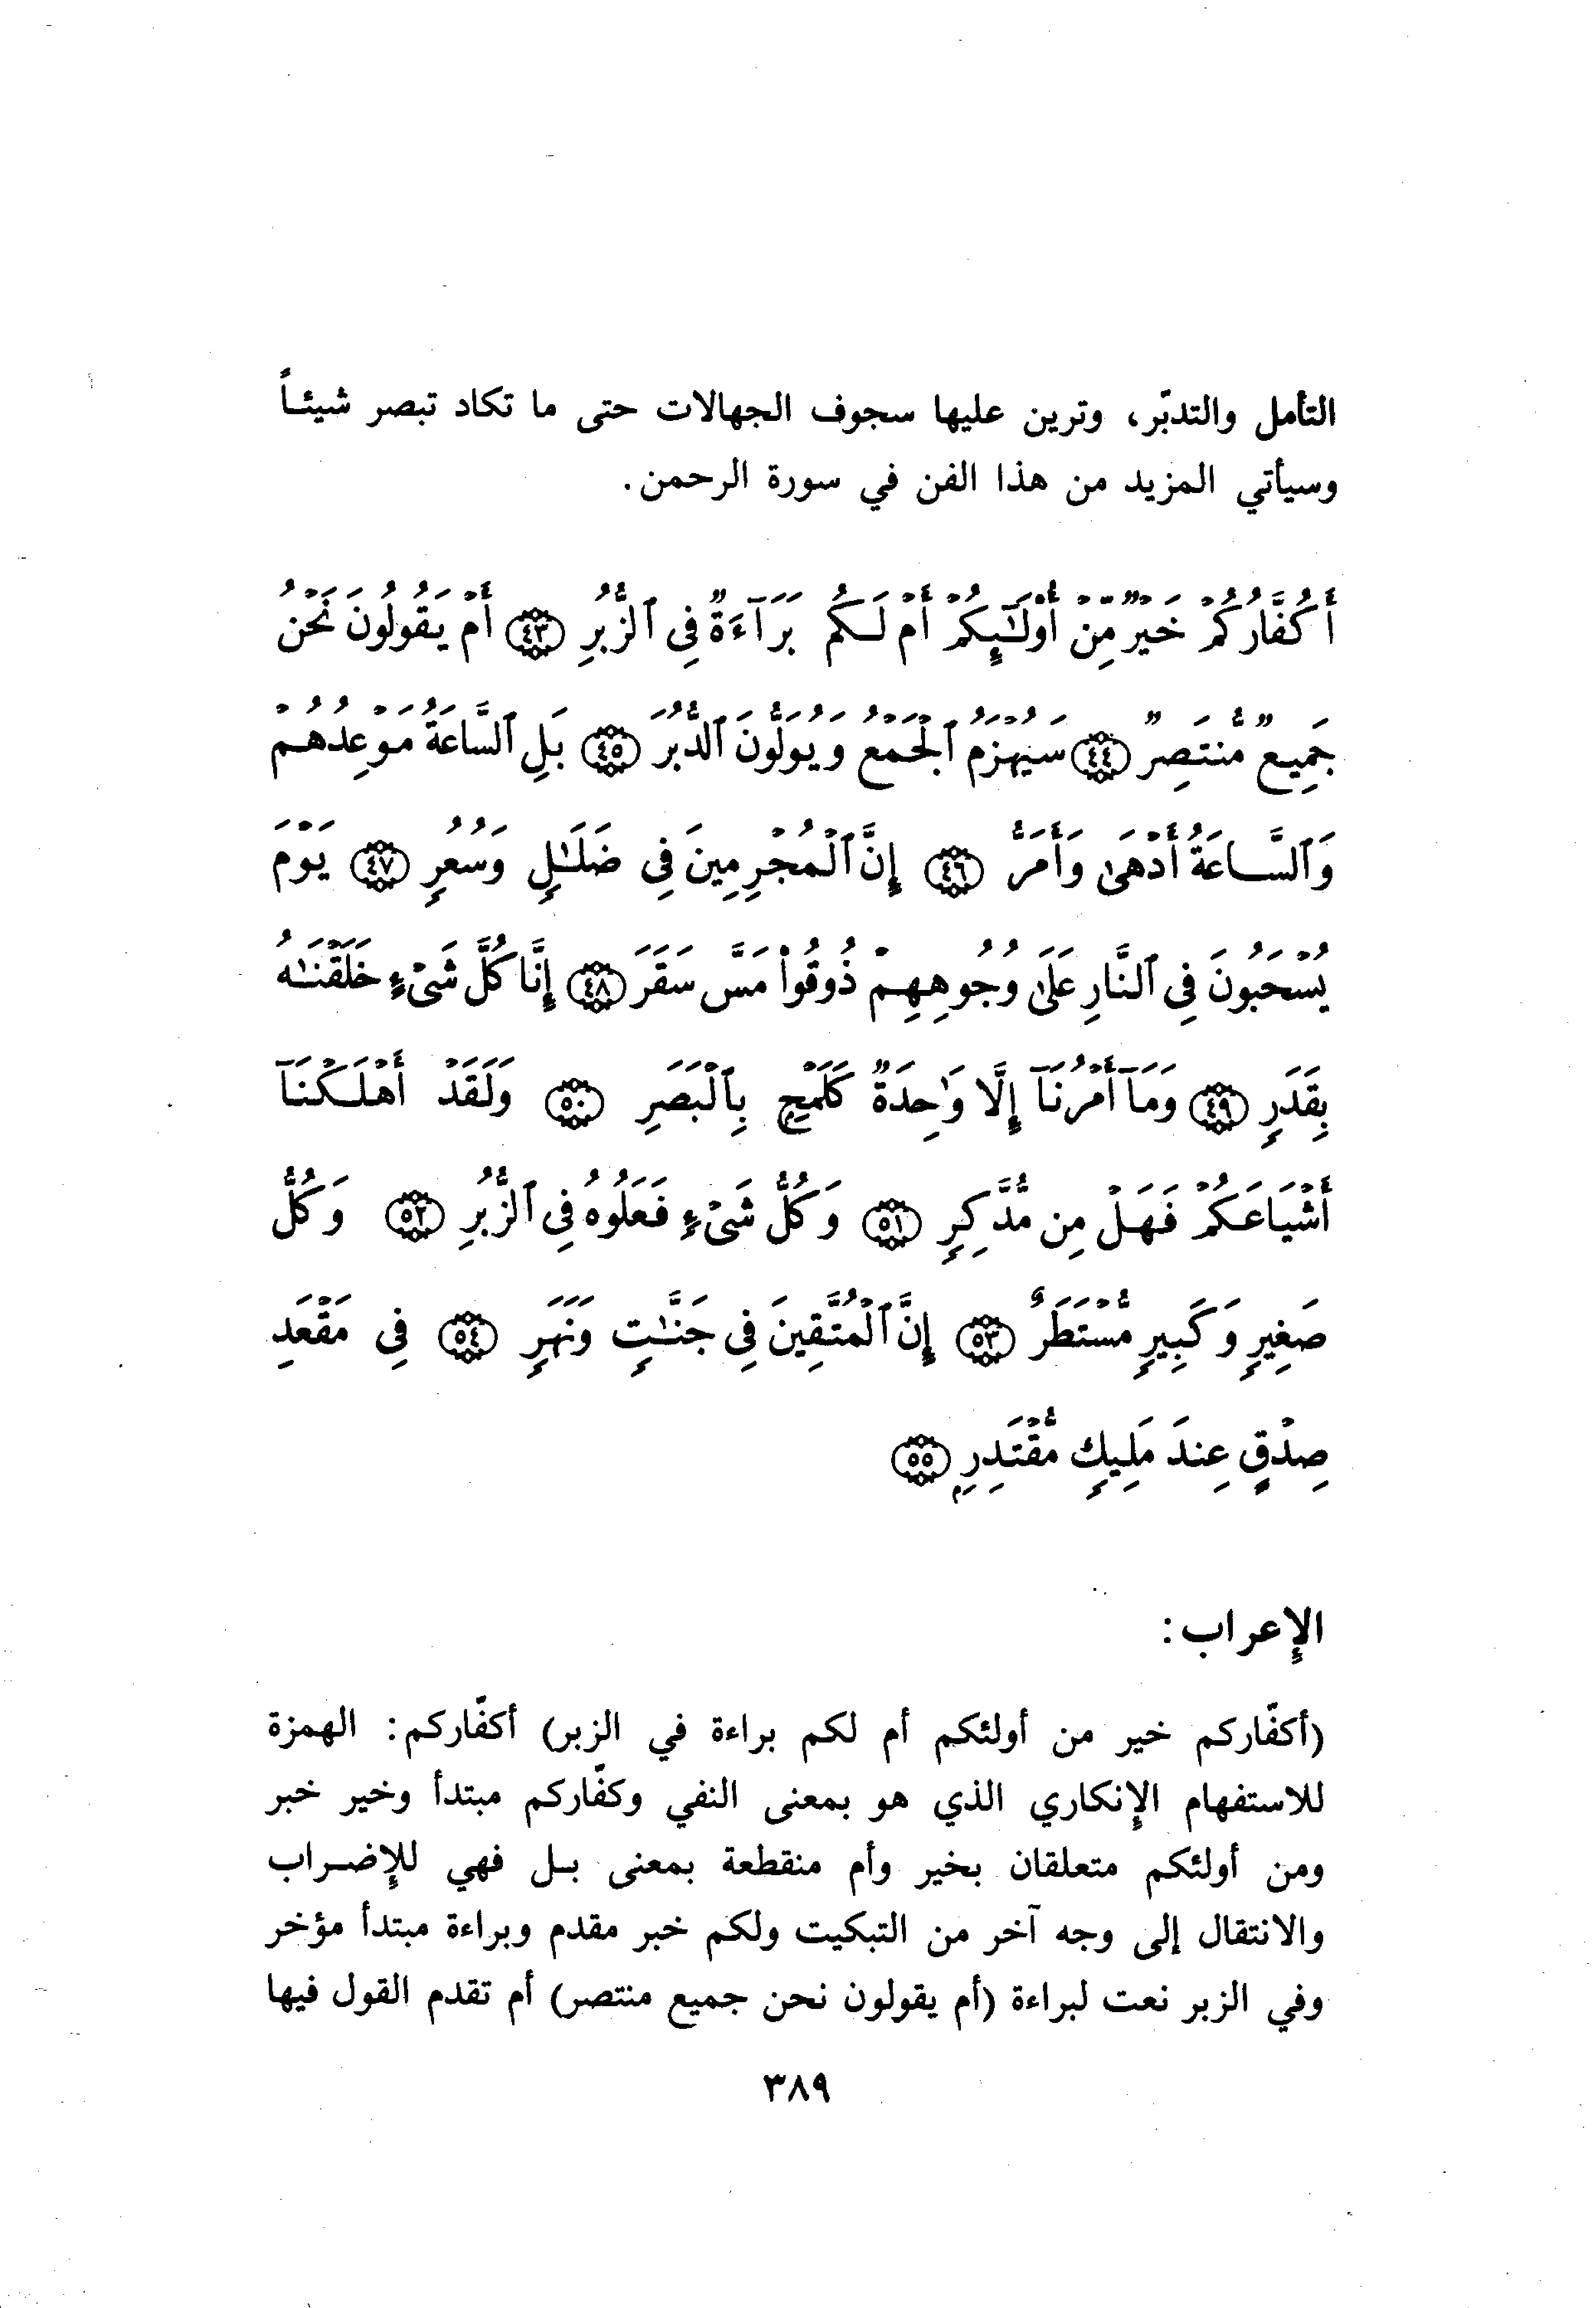 التأمل والتدبّر، وترين عليها سجوف الجهالات حتى ما تكاد تبصر شيئـاً
وسيأتي المزيد من هذا الفن في سورة الرحمن.
أَكُفَّارُكُمْ خَيْرٌ مِّنْ أُوْلَـٰٓئِكُمْ أَمْ لَـكُم بَرَآءَةٌ فِي ٱلزُّبُرِ ٤٣ أَمْ يَقُولُونَ نَحْنُ
جَمِيعٌ مُّنتَصِرٌ ٤٤ سَيُهْزَمُ ٱلْجَمْعُ وَيُوَلُّونَ ٱلدُّبُرَ ٤٥ بَلِ ٱلسَّاعَةُ مَوْعِدُهُـمْ
وَٱلسَّـاعَةُ أَدْهَىٰ وَأَمَرُّ ٤٦ إِنَّ ٱلْمُجْرِمِينَ فِي ضَلَـٰلٍ وَسُعُرٍ ٤٧ يَوْمَ
يُسْحَبُونَ فِي ٱلنَّارِ عَلَىٰ وُجُوهِهِـمْ ذُوقُواْ مَسَّ سَقَرَ ٤٨ إِنَّا كُلَّ شَىْءٍ خَلَقْنَـٰهُ
بِقَدَرٍ ٤٩ وَمَآ أَمْرُنَآ إِلَّا وَٰحِدَةٌ كَلَمْحٍ بِٱلْبَصَرِ ٥٠ وَلَقَدْ أَهْلَـكْنَآ
أَشْيَاعَـكُمْ فَهَـلْ مِن مُّدَّكِرٍ ٥١ وَكُلُّ شَىْءٍ فَعَلُوهُ فِي ٱلزُّبُرِ ٥٢ وَكُلُّ
صَغِيرٍ وَكَبِيرٍ مُّسْتَطَرٌ ٥٣ إِنَّ ٱلْمُتَّقِينَ فِي جَنَّـٰتٍ وَنَهَرٍ ٥٤ فِي مَقْعَدِ
صِدْقٍ عِندَ مَلِيكٍ مُّقْتَدِرٍۭ ٥٥
الإعراب:
(أكفّاركم خير من أولئكم أم لكم براءة في الزبر) أكفّاركم: الهمزة
للاستفهام الإنكاري الذي هو بمعنى النفي وكفّاركم مبتدأ وخير خبر
ومن أولئكم متعلقان بخير وأم منقطعة بمعنى بـل فهي للإضـراب
والانتقال إلى وجه آخر من التبكيت ولكم خبر مقدم وبراءة مبتدأ مؤخر
وفي الزبر نعت لبراءة (أم يقولون نحن جميع منتصر) أم تقدم القول فيها
٣٨٩